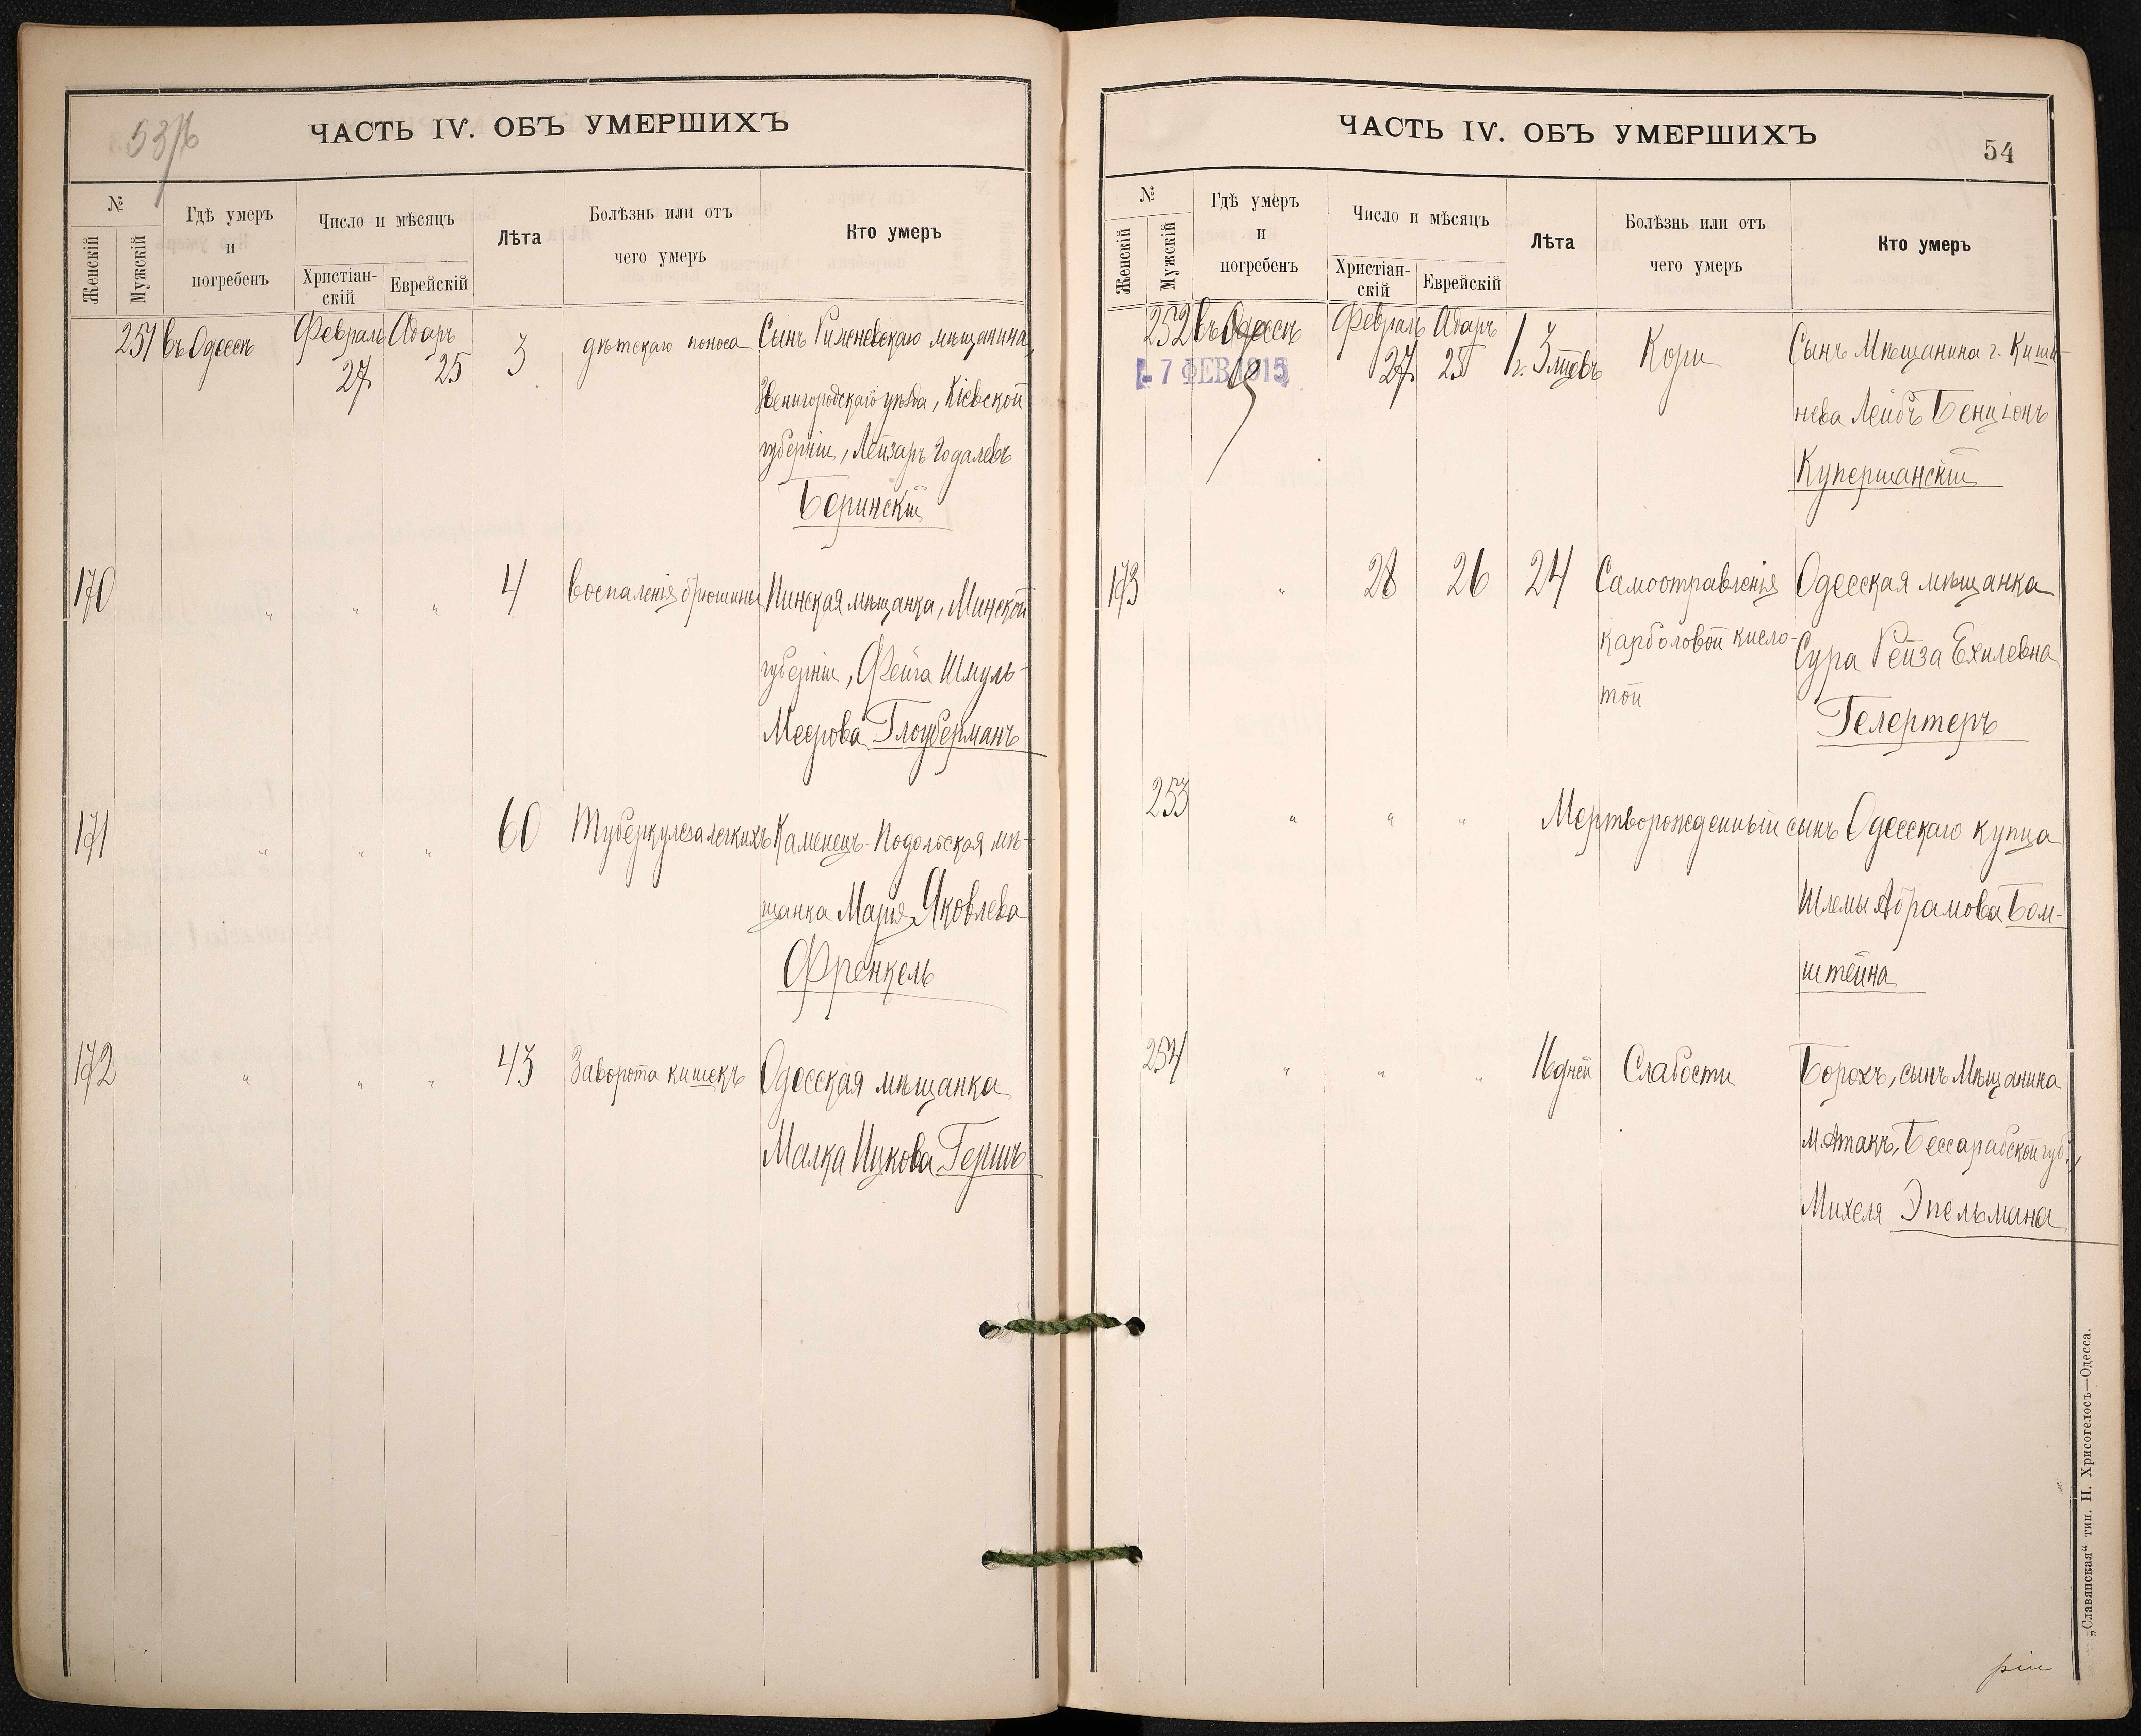 53/б
ЧАСТЬ IV. ОБЪ УМЕРШИХЪ
№
Женскій
Мужскій
Гдѣ умеръ
и
погребенъ
Число и мѣсяцъ
Христіан-
скій
Еврейскій
Лѣта
Болѣзнь или отъ
чего умеръ
Кто умеръ
251 въ Одессѣ Февраль 27 Адаръ 25 3 дѣтскаго поноса Сынъ мѣщанина,
Звенигородскаго уѣзда, Кіевской
губерніи, Лейзаръ Годалевъ
Беринскій
170 " " " 4 Воспаленія брюшины Пинская мѣщанка, Минской
губерніи, Фейга Шмуль-
Меерова Глоуберманъ
171 " " " 60 Туберкулеза легкихъ Каменецъ-Подольская мѣ-
щанка Марія Яковлева
Френкель
172 " " " 43 Заворота кишекъ Одесская мѣщанка
Малка Ицкова Гершъ
ЧАСТЬ IV. ОБЪ УМЕРШИХЪ
54
№
Женскій
Мужскій
Гдѣ умеръ
и
погребенъ
Число и мѣсяцъ
Христіан-
скій
Еврейскій
Лѣта
Болѣзнь или отъ
чего умеръ
Кто умеръ
252 въ Одессѣ Февраль 27 Адаръ 25 1 г. 3 мѣсѣвъ Кори Сынъ Мѣщанина г. Киши-
7 ФЕВ 1915
нева Лейбъ Бенціонъ
Купершанскій
173 " 28 26 24 Самоотравленія Одесская мѣщанка
карболовой кисло- Сура Рейза Ехилевна
той
Гелертеръ
253 " " " Мертворожденный сынъ Одесскаго купца
Шлемы Абрамова Бом-
штейна
254 " " " 16 дней Слабости Борохъ, сынъ Мѣщанина
М. Атакъ, Бессарабской губ.,
Михеля Эпельмана
„Славянская“ тип. Н. Хрисогелосъ—Одесса.